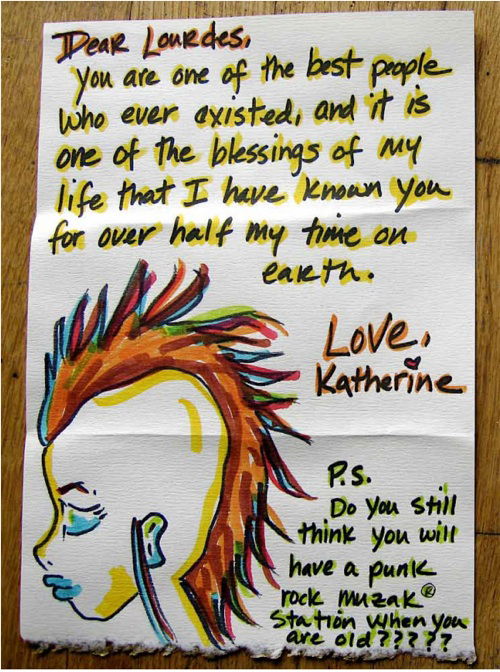 Dear Lourdes,
You are one of the best people
who ever existed, and it is
one of the blessings of my
life that I have known you
for over half my time on
earth.
Love,
Katherine
P.S.
Do you still
think you will
have a punk
rock muzak®
station when you
are old?????